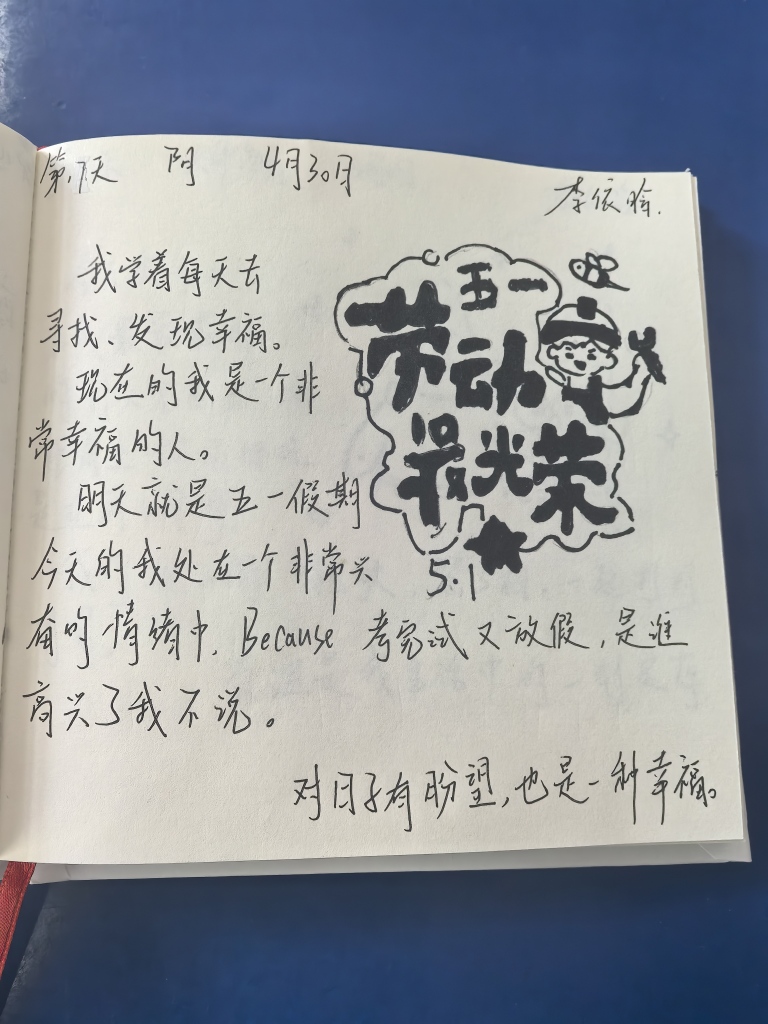 第17天 阴 4月30日
李依晗.
我学着每天去
寻找、发现幸福。
现在的我是一个非
常幸福的人。
明天就是五一假期
今天的我处在一个非常兴
奋的情绪中, Because 考完试又放假,是谁
高兴了我不说。
对日子有盼望,也是一种幸福。
五一
劳动
最光荣
5.1